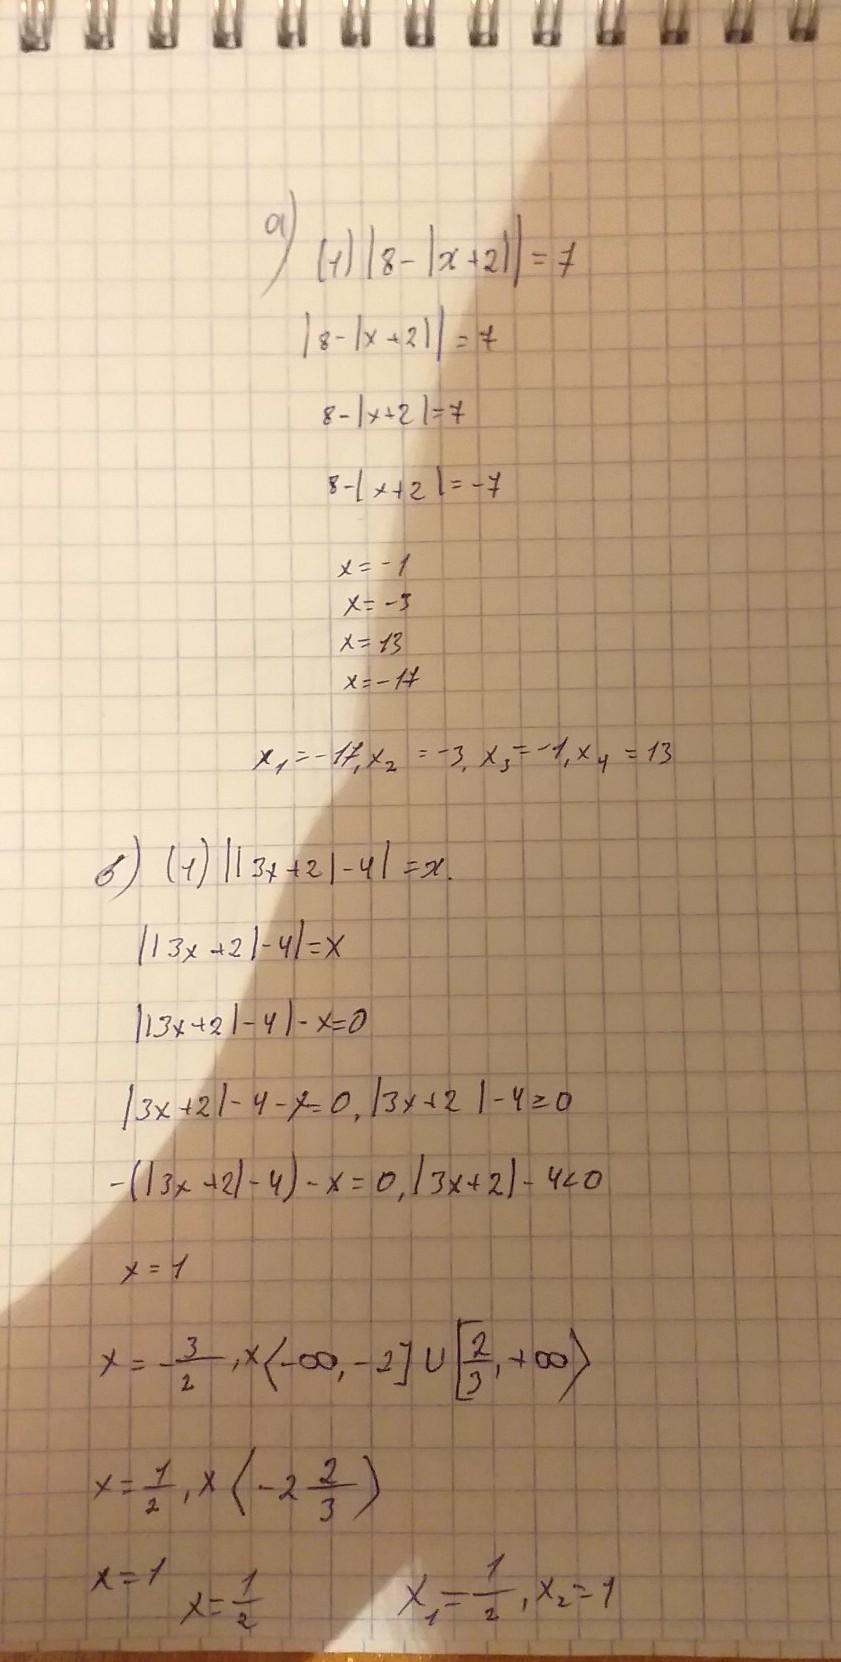 а) (1) |8-|x+2|| = 7
|8-|x+2|| = 7
8-|x+2|=7
8-|x+2|=-7
x=-1
x=-3
x=13
x=-17
x₁=-17, x₂=-3, x₃=-1, x₄=13
в) (1) ||3x+2|-4|=x.
||3x+2|-4|=x
||3x+2|-4|-x=0
|3x+2|-4-x=0, |3x+2|-4≥0
-(|3x+2|-4)-x=0, |3x+2|-4<0
x=1
x=-3/2, x⟨-∞,-2]∪[2/3,+∞⟩
x=1/2, x⟨-2 2/3⟩
x=1 x=1/2 x₁=1/2, x₂=1